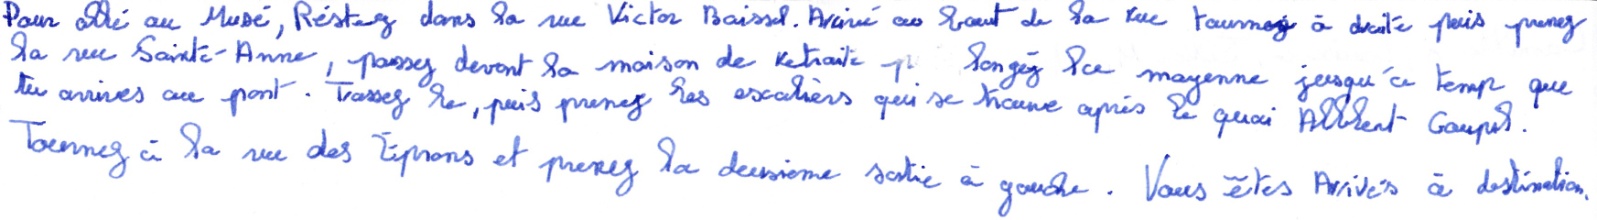 Pour allé au Musé, Réstez dans la rue Victor Boissel. Arrivé au bout de la rue tournez à droite puis prenez
la rue Sainte-Anne, passez devant la maison de retraite longéz la mayenne jusqu'a temp que
tu arrives au pont. Passez le, puis prenez les escaliers qui se trouve après le quai Albert Goupil.
Tournez à la rue des Éprons et prenez la deuxieme sortie à gauche. Vous êtes Arrivés à destination.